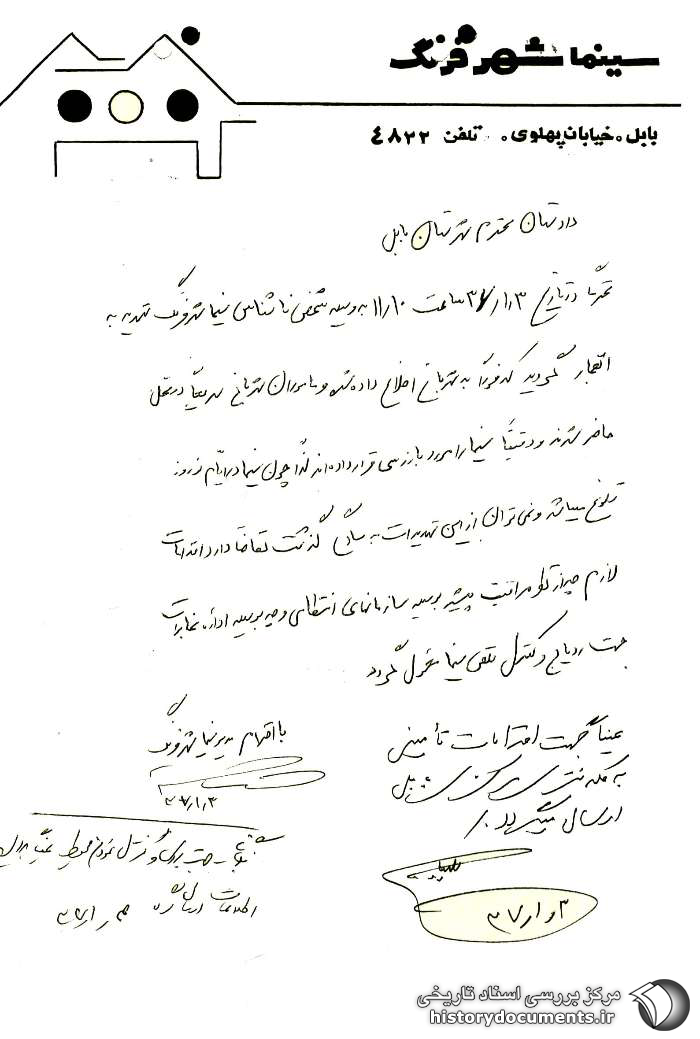 سینما شهر فرنگ
بابل . خیابان پهلوی . تلفن ٤٨٢٢
دادستان محترم شهرستان بابل
محترما در تاریخ ۳۷/۱/۳ ساعت ۱۱/۱۰ به وسیله شخص ناشناس سینما شهرفرنگ تهدید به
انفجار گردید که فورا به شهربانی اطلاع داده شد و ماموران شهربانی سریعا در محل
حاضر شدند و دقیقا سینما را مورد بازرسی قرار داده‌اند لذا چون سینما در ایام نوروز
شلوغ میباشد و نمی‌توان از این تهدیدات به سادگی گذشت تقاضا دارد اقدامات
لازم چه از نظر مراقبت بیشتر بوسیله سازمانهای انتظامی و چه بوسیله اداره مخابرات
جهت ردیابی و کنترل تلفن سینما معمول گردد
با احترام مدیر سینما شهرفرنگ
۳۷/۱/۳
عینا جهت اقدامات تأمینی
به کلانتری مرکزی بابل
ارسال میگردد
۳۷/۱/۳
اطلاعات ارسال شد
مرکز بررسی اسناد تاریخی
historydocuments.ir